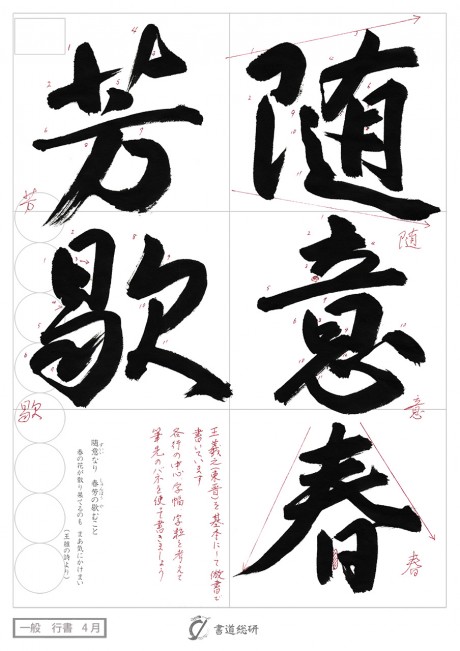 随意春
芳歇
随
意
春
芳
歇
王羲之(東晋)を基本にして倣書で
書いています
各行の中心、字幅、字粒を考えて
筆先のバネを使って書きましょう
随意なり 春芳の歇むこと
春の花が散り果てるのも まあ気にかけまい
(王維の詩より)
一般 行書 4月
書道総研